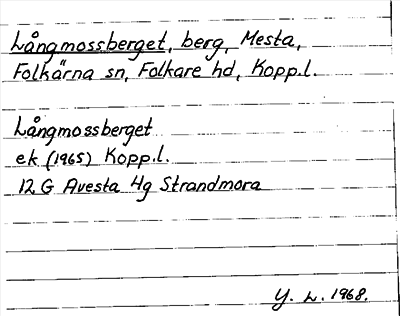 Långmossberget, berg, Mesta,
Folkärna sn, Folkare hd, Kopp.l.
Långmossberget
ek (1965) Kopp.l.
12 G Avesta 4g Strandmora
Y. L. 1968.